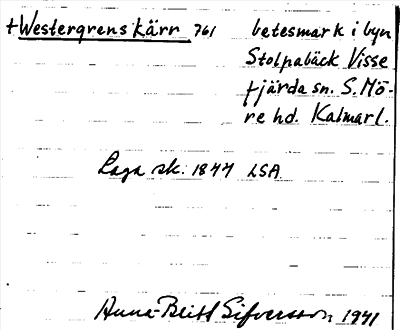 +Westergrens Kärr 761 betesmark i byn
Stolpabäck Visse
fjärda sn. S. Mö-
re hd. Kalmarl.
Laga sk. 1844 LSA.
Anna-Britt Sifversson 1941